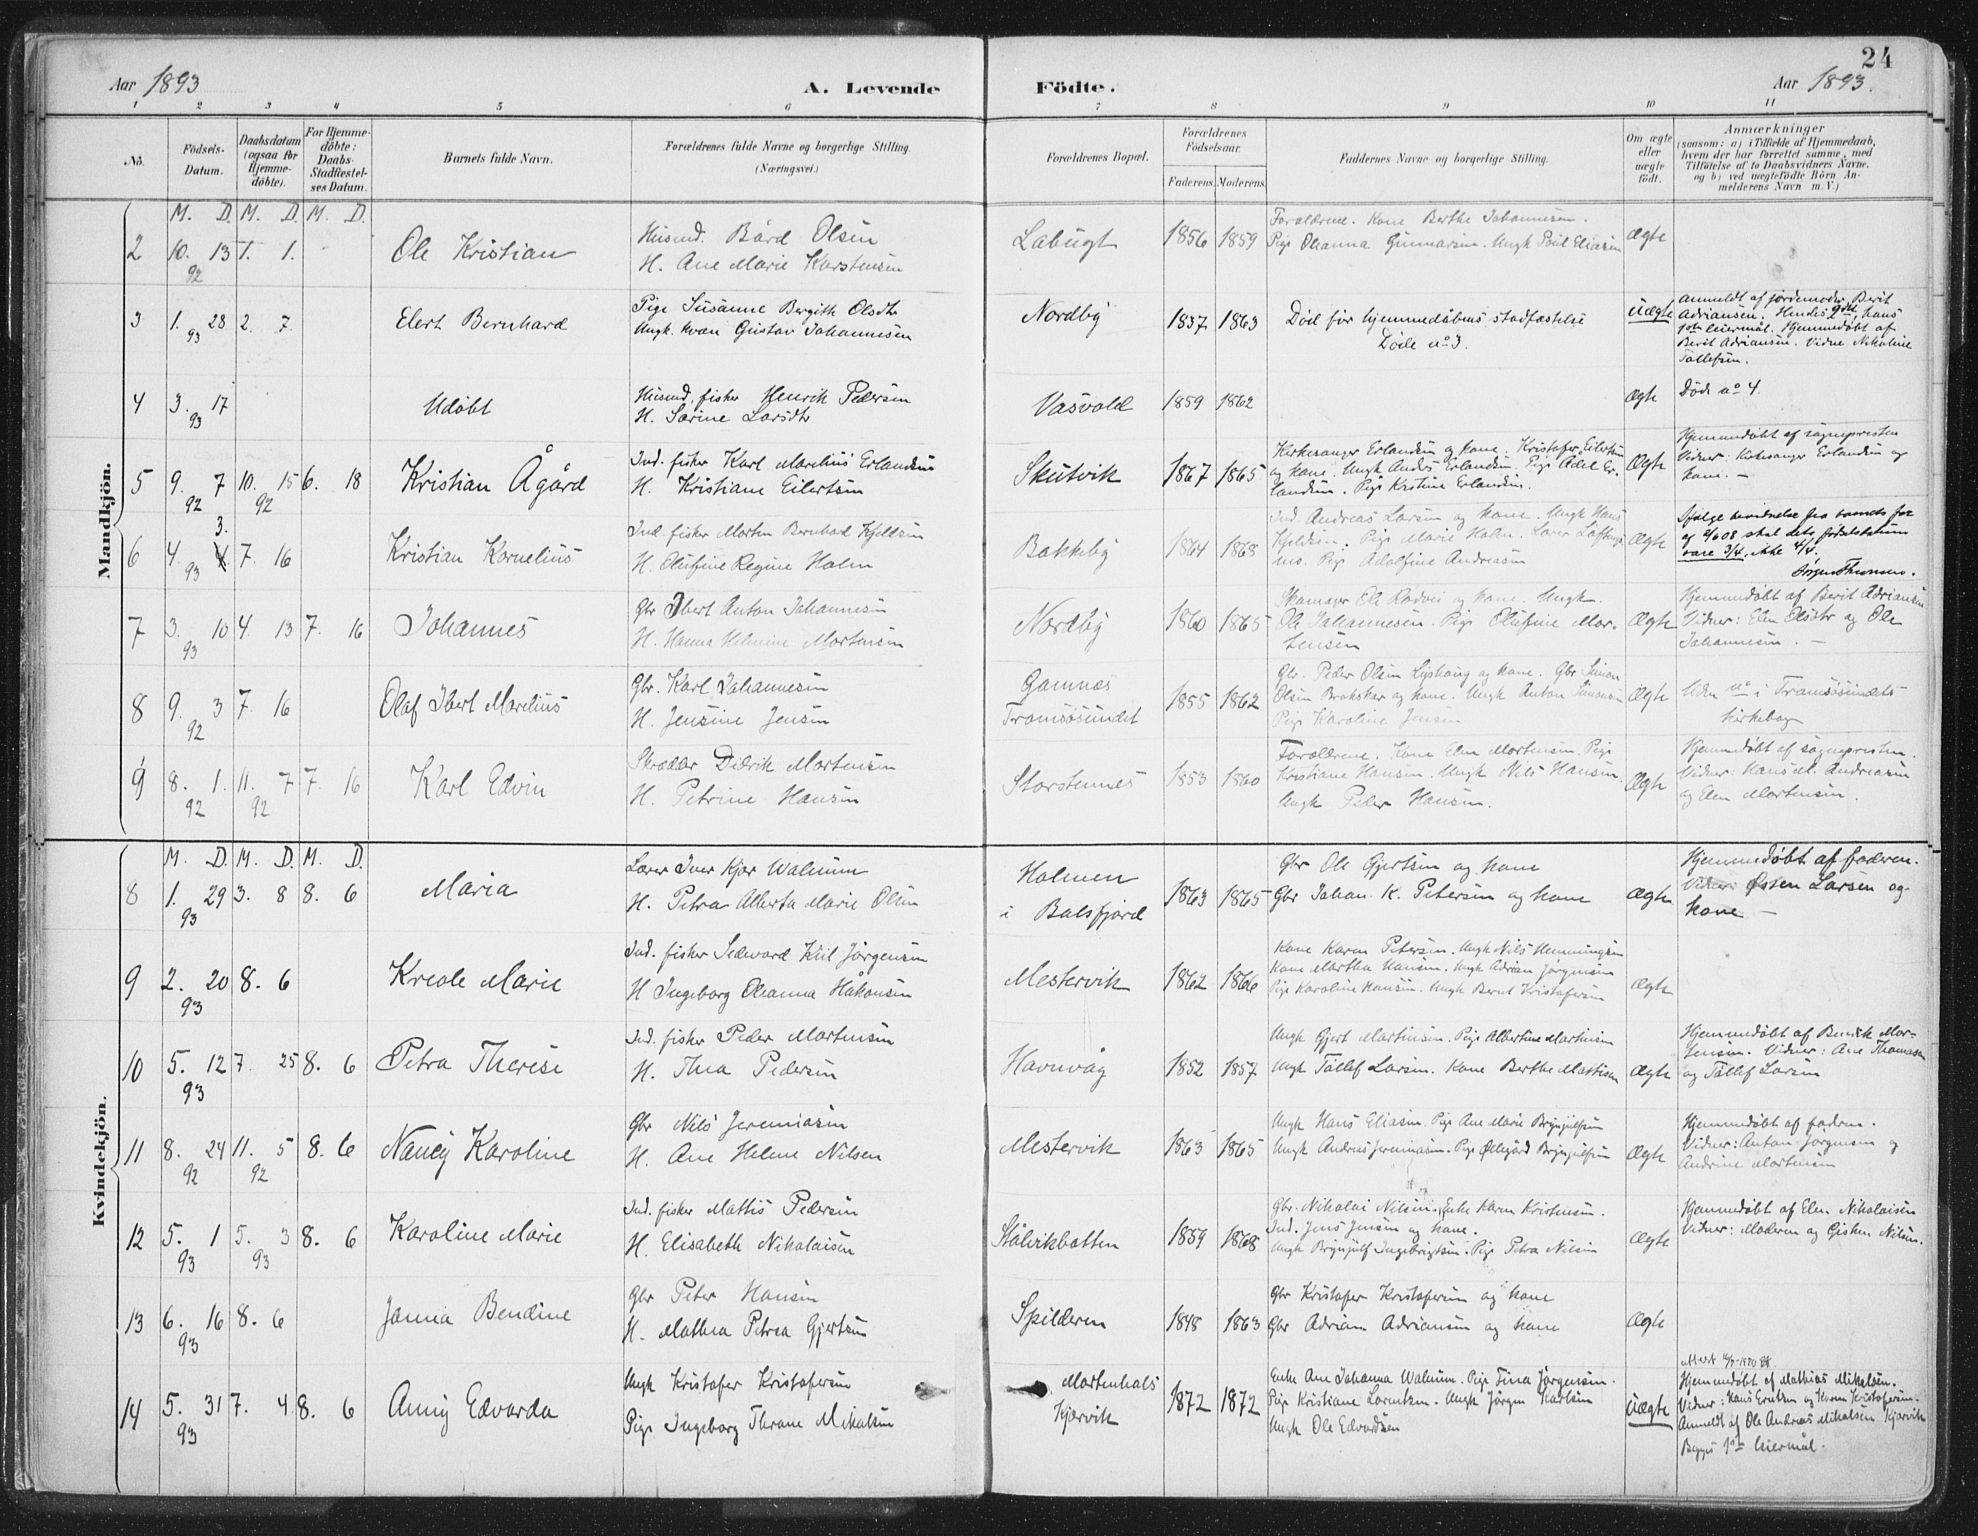 24
Aar 1893
A. Levende
Födte.
Aar 1893.
1 2 3 4 5 6 7 8 9 10 11
No.
Födsels-Datum.
Daabsdatum (ogsaa for Hjemme-döbte).
For Hjemme-döbte: Daabs-Stadfæstel-ses Datum.
Barnets fulde Navn.
Forældrenes fulde Navne og borgerlige Stilling (Næringsvei.)
Forældrenes Bopæl.
Forældrenes Födselsaar.
Faderens. Moderens.
Faddernes Navne og borgerlige Stilling.
Om ægte eller uægte födt.
Anmærkninger
(saasom: a) i Tilfælde af Hjemmedaab,
hvem der har forrettet samme, med
Tilföielse af to Daabsvidners Navne,
og b) ved uægtefödte Börn An-
melderens Navn m. V.)
Mandkjön.
M. D. M. D. M. D.
2 10. 13 92 1. 1. Ole Kristian
Husmd. Bård Olsen
H. Ane Marie Karstensen
Labugt 1856 1859
Forældrene. Kone Berthe Johannesen.
Pige Oleanna Gunnarsen. Ungk Poul Eliasen
Ægte
3 1. 28 93 2. 7. Elert Bernhard
Pige Susanne Bergith Olsdtr
Ungk. kvæn Gustav Johannesen
Nordby 1837 1863
Död for hjemmedåbens stadfæstelse
Döde no 3.
Uægte
Anmeldt af jordemoder Berit
Adriansen. Hendes 2det, hans
1ste leiermål. Hjemmedöbt af
Berit Adriansen. Vidne Nikoline
Tollefsen.
4 3. 17 93 Udöbt
Husmd. fisker Henrik Pedersen
H. Sarine Larsdtr
Vasvold 1859 1862 Ægte Döde no 4.
5 9. 7 92 10. 15 92 6. 18 Kristian Ågård
Ind. fisker Karl Marelius Erlandsen
H. Kristiane Eilertsen
Skutvik 1867 1865
Kirkesanger Erlandsen og kone. Kristofer Eilertsen
og kone. Ungk Anders Erlandsen. Pige Adel Er-
landsen. Pige Kristine Erlandsen.
Ægte
Hjemmedöbt af sognepresten
Vidner: Kirkesanger Erlandsen og
kone. —
6 4. 4. 3. 93 7. 16 Kristian Kornelius
Ind. fisker Morten Bernhard Kjeldsen
H. Olufine Regine Holm
Bakkeby 1864 1868
Ind. Andreas Larsen og kone. Ungk Hans
Kjeldsen. Pige Marie Holm. Lærer
Pige Adolfine Andreasen
Ægte
Ifølge bevidnelse fra barnets far
skal dets fødselsdatum
være 3/4, ikke 4/4.
Jörgen Thomsen.
7 3. 10 93 4. 13 7. 16 Johannes
Gbr Ibert Anton Johannesen
H. Hanna Helmine Mortensen
Nordby 1860 1865
Skomager Ole Rodvei og kone. Ungk.
Ole Johannesen. Pige Olufine Mor-
tensen
Ægte
Hjemmedöbt af Berit Adriansen
Vidner: Elen Olsdtr og Ole
Johannesen. —
8 9. 3 92 7. 16 Olaf Ibert Marelius
Gbr. Karl Johannesen
H. Jensine Jensen
Gamnæs
Tromsösundet 1855 1862
Gbr. Peder Olsen og kone. Gbr. Simon
Olsen og kone. Ungk Anton Simonsen
Pige Karoline Jensen
Ægte
Uden no i Tromsösundets
kirkebog
9 8. 1. 92 11. 7 92 7. 16 Karl Edvin
Skrædder Didrik Mortensen
H. Petrine Hansen
Storstennes 1853 1860
Forældrene. Kone Elen Mortensen. Pige
Kristiane Hansen. Ungk Nils Hansen.
Ungk Peder Hansen.
Ægte
Hjemmedöbt af sognepresten.
Vidner: Hans Andreasen
og Elen Mortensen.
Kvindekjön.
M. D. M. D. M. D.
8 1. 29 93 3. 8 8. 6 Maria
Lærer Iver Kjær Walnum
H. Petra Alberta Marie Olsen
Holmen
i Balsfjord 1863 1865
Gbr Ole Gjertsen og kone
Gbr Johan K. Petersen og kone
Ægte
Hjemmedöbt af faderen.
Vidner: Östen Larsen og
kone —
9 2. 20 93 8. 6 Kreole Marie
Ind. fisker Sedevard Kiil Jörgensen
H Ingeborg Oleanna Håkonsen
Mestervik 1862 1866
Kone Karen Petersen. Ungk Nils Henningsen
Kone Martha Hansen. Ungk Adrian Jörgensen
Pige Karoline Hansen. Ungk Bernt Kristofersen
Ægte
10 5. 12 93 7. 25 8. 6 Petra Therese
Ind. fisker Peder Mortensen
H. Thea Pedersen
Havnvåg 1852 1857
Ungk Gjert Martinsen. Pige Albertine Mortensen
Ungk Tollef Larsen. Kone Berthe Mattisen
Ægte
Hjemmedöbt af Benrik Mor-
tensen. Vidner: Ane Thomasen
og Tollef Larsen
11 8. 24 92 11. 5 92 8. 6 Nancy Karoline
Gbr Nils Jeremiasen
H. Ane Helene Nilsen
Mestervik 1863 1865
Ungk Hans Eliasen. Pige Ane Marie Brynjulfsen
Ungk Andreas Jeremiasen. Pige Öllegård Brynjulfsen
Ægte
Hjemmedöbt af faderen.
Vidner: Anton Jörgensen og
Andrine Mortensen
12 5. 1 93 5. 3 93 8. 6 Karoline Marie
Ind. fisker Mattis Pedersen
H. Elisabeth Nikolaisen
Stålvikbotten 1859 1868
Gbr. Nikolai Nilsen. Enke Karen Kristensen.
Ind. Jens Jensen og kone.
Ungk Brynjulf Ingebrigtsen. Pige Petra Nilsen
Ægte
Hjemmedöbt af Elen Nikolaisen
Vidner: Moderen og Gisken Nilsen.
13 6. 16 93 8. 6 Janna Bendine
Gbr Peter Hansen
H. Mathea Petrea Gjertsen
Spilderen 1848 1863
Gbr Kristofer Kristofersen og kone
Gbr Adrian Adriansen og kone
Ægte
14 5. 31 93 7. 4. 8. 6 Anny Edvarda
Ungk Kristofer Kristofersen
Pige Ingeborg Thrane Mikalsen
Mortenhals
Kjærvik 1872 1872
Enke Ane Johanna Walnum. Pige Tina Jörgensen.
Pige Kristiane Lorentsen. Ungk Jörgen Karlsen
Ungk Ole Edvardsen
Uægte
Hjemmedöbt af Mathias Mikalsen.
Vidner: Hans Erntsen og Karen Kristofersen.
Anmeldt af Ole Andreas Mikalsen Kjærvik
Begges 1ste leiermål.